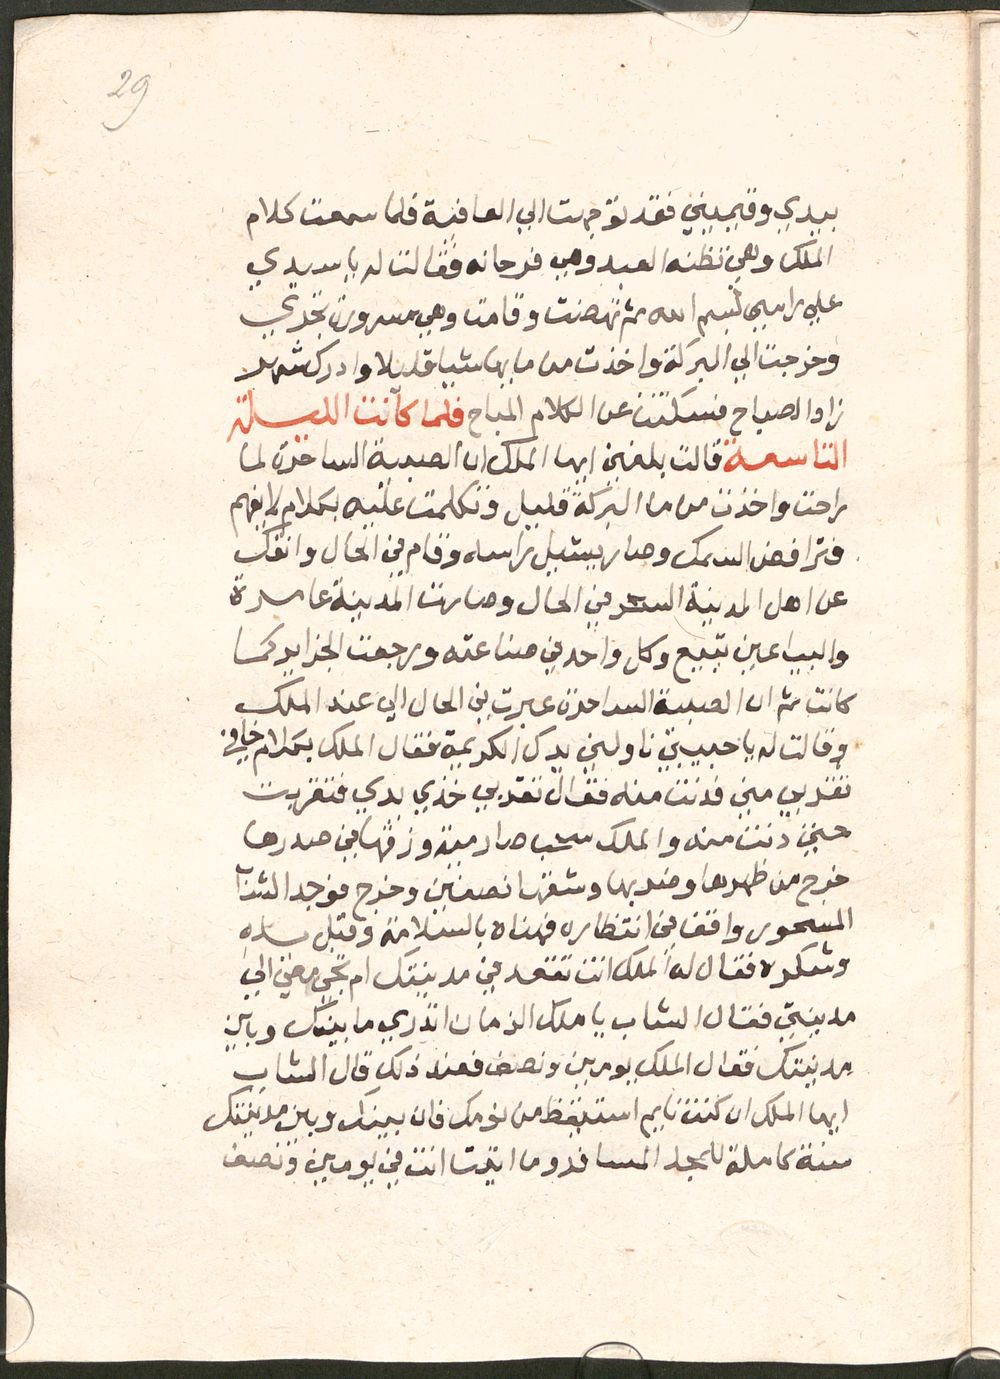 29
بيدي وقيميني فقد توجهت الي العافية فلما سمعت كلام
الملك وهي تظنه العبد وهي فرحانه فقالت له يا سيدي
علي راسي بسم الله ثم نهضت وقامت وهي مسرورة تجري
وخرجت الي البركة واخذت من مايها شيا قليلا وادرك شهر
زاد الصباح فسكتت عن الكلام المباح فلما كانت الليلة
التاسعة قالت بلغني ايها الملك ان الصبية الساحرة لما
راحت واخذت من ما البركة قليل وتكلمت عليه بكلام لا يفهم
فتراقص السمك وصار يشيل راسه وقام في الحال وانفك
عن اهل المدينة السحر في الحال وصارت المدينة عامرة
والبياعين تبيع وكل واحد في صناعته ورجعت الجزاير كما
كانت ثم ان الصبية الساحرة عبرت في الحال الي عند الملك
وقالت له يا حبيبي ناولني يدك الكريمة فقال الملك بكلام خافي
تقدبي مني فدنت منه فقال تقدبي خذي يدي فتقربت
حتي دنت منه والملك سحب صارمه وزقها في صدرها
خرج من ظهرها وضربها وشقها نصفين وخرج فوجد الشاب
المسحور واقف في انتظاره فهناه بالسلامة وقبل يده
وشكره فقال له الملك انت تقعد في مدينتك ام تجي معي الي
مدينتي فقال الشاب يا ملك الزمان اتدري ما بينك وبين
مدينتك فقال الملك يومين ونصف فعند ذلك قال الشاب
ايها الملك ان كنت نايم استيقظ من نومك فان بينك وبين مدينتك
سنة كاملة للمجد المسافر وما اتيت انت في يومين ونصف